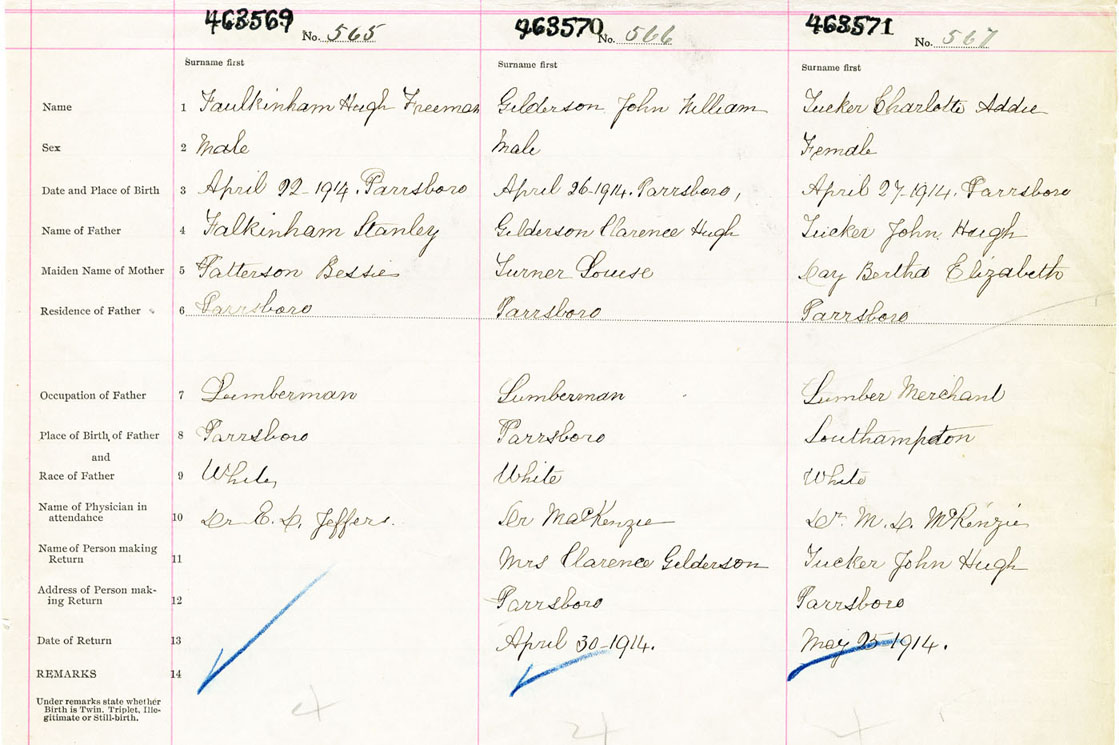 463569 463570 463571
No. 565 No. 566 No. 567
Surname first Surname first Surname first
Name 1 Faulkinham Hugh Freeman Gilderson John William Tucker Charlotte Addie
Sex 2 Male Male Female
Date and Place of Birth 3 April 22-1914. Parrsboro April 26-1914. Parrsboro, April 27-1914. Parrsboro
Name of Father 4 Falkinham Stanley Gilderson Clarence Hugh Tucker John Hugh
Maiden Name of Mother 5 Patterson Bessie Turner Louise Day Bertha Elizabeth
Residence of Father 6 Parrsboro Parrsboro Parrsboro
Occupation of Father 7 Lumberman Lumberman Lumber Merchant
Place of Birth, of Father 8 Parrsboro Parrsboro Southampton
and
Race of Father 9 White White White
Name of Physician in
attendance 10 Dr E. D. Jeffers. Dr MacKenzie Dr. M. D. McKenzie
Name of Person making
Return 11 Mrs Clarence Gilderson Tucker John Hugh
Address of Person mak-
ing Return 12 Parrsboro Parrsboro
Date of Return 13 April 30-1914. May 25-1914.
REMARKS 14
Under remarks state whether
Birth is Twin, Triplet, Ille-
gitimate or Still-birth.